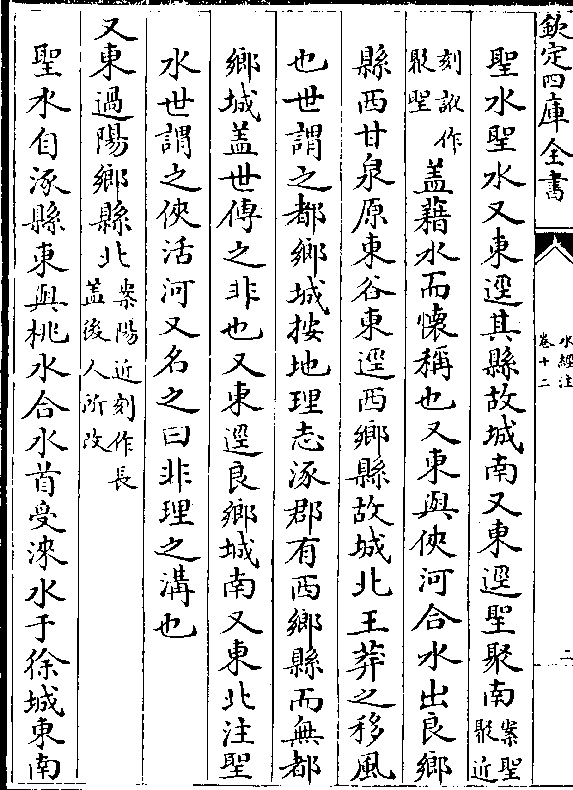 欽定四庫全書
水經注
卷十二
二
聖水聖水又東逕其縣故城南又東逕聖聚南案聖聚近
刻訛作聚聖蓋藉水而懷稱也又東與俠河合水出良鄉
縣西甘泉原東谷東逕西鄉縣故城北王莽之移風
也世謂之都鄉城按地理志涿郡有西鄉縣而無都
鄉城蓋世傳之非也又東逕良鄉城南又東北注聖
水世謂之俠活河又名之曰非理之溝也
又東過陽鄉縣北案陽近刻作長蓋後人所改
聖水自涿縣東與桃水合水首受淶水于徐城東南